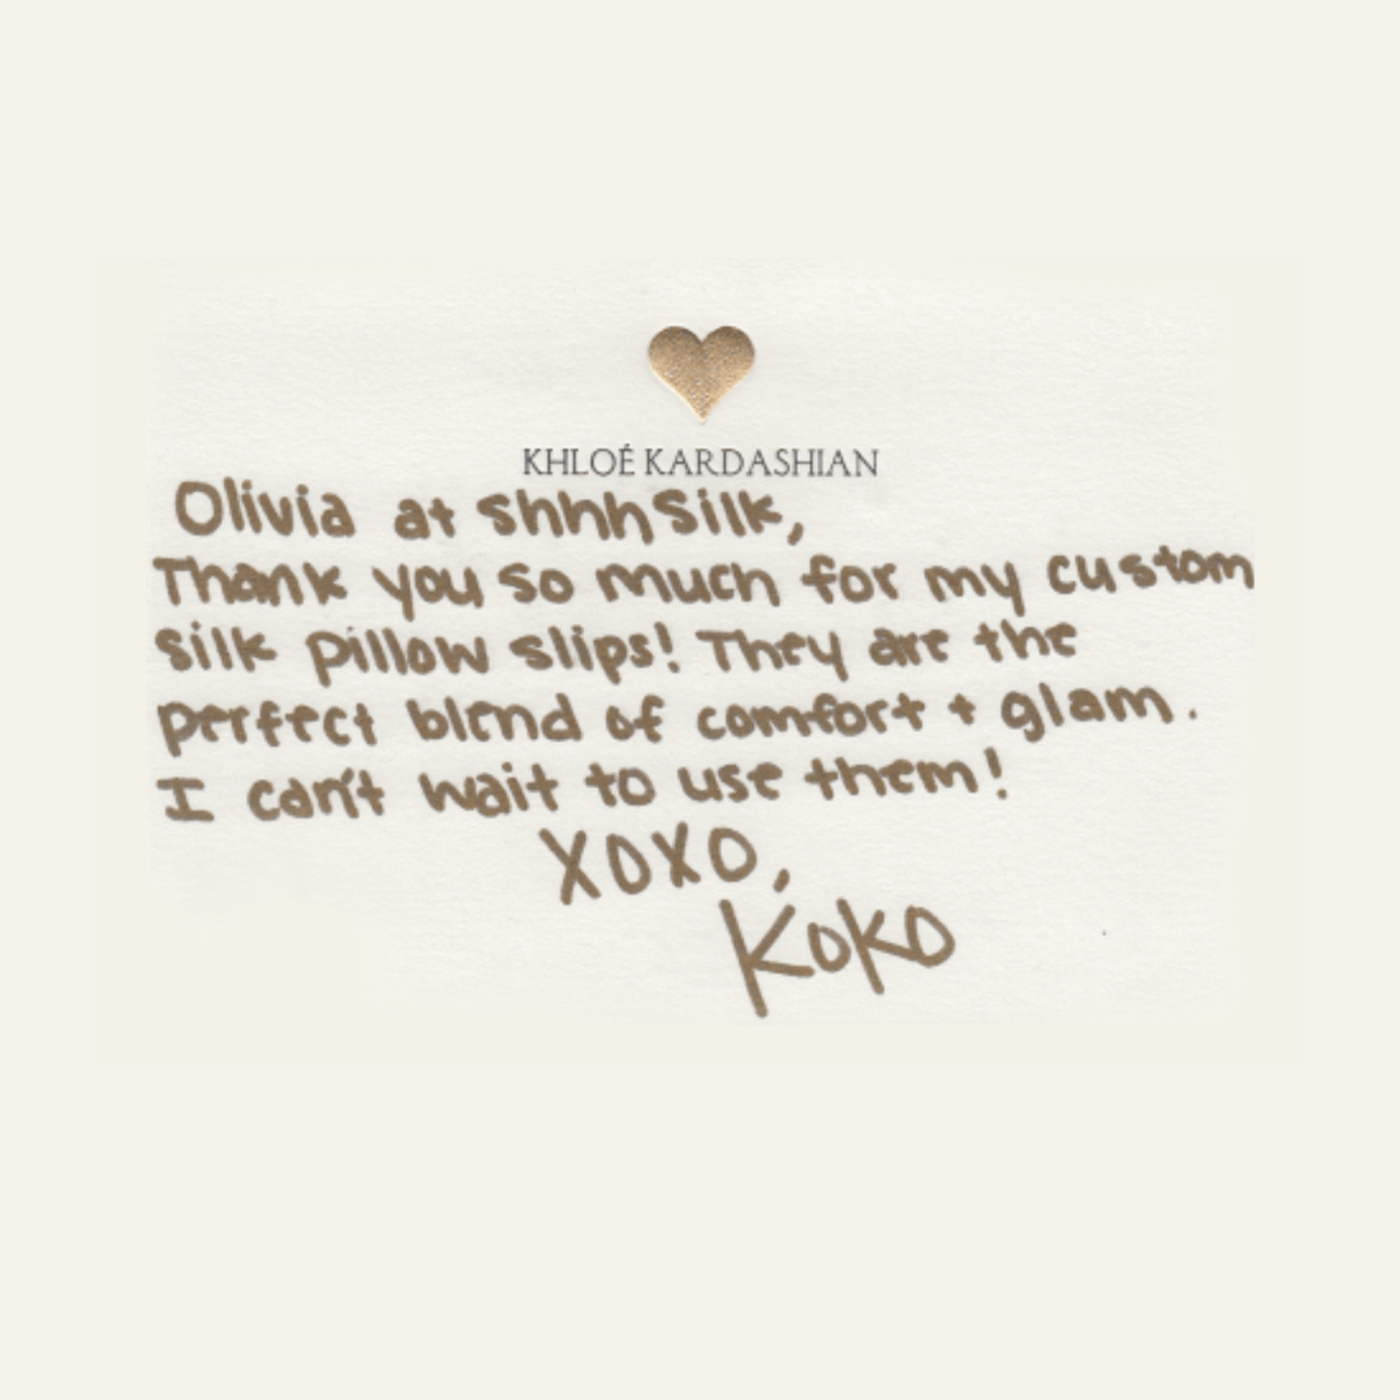 KHLOÉ KARDASHIAN
Olivia at shhhSilk,
Thank you so much for my custom
silk pillow slips! They are the
perfect blend of comfort + glam.
I can't wait to use them!
XOXO,
KoKo